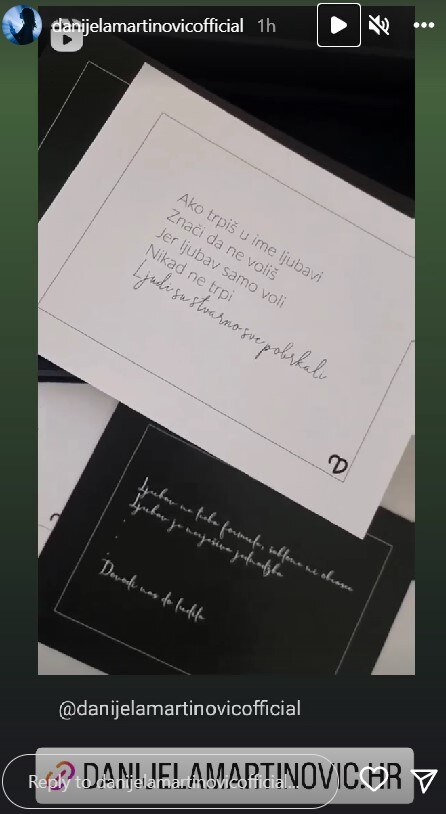 danijelamartinovicofficial 1h
Ako trpiš u ime ljubavi
Znači da ne voliš
Jer ljubav samo voli
Nikad ne trpi
Ljudi su stvarno sve pobrkali
Ljubav ne treba formule, volteve ni ekране
Ljubav je najjača jednadžba
.
.
.
Dovodi nas do ludila
@danijelamartinovicofficial
DANIJELAMARTINOVIC.HR
Reply to danijelamartinovicofficial...